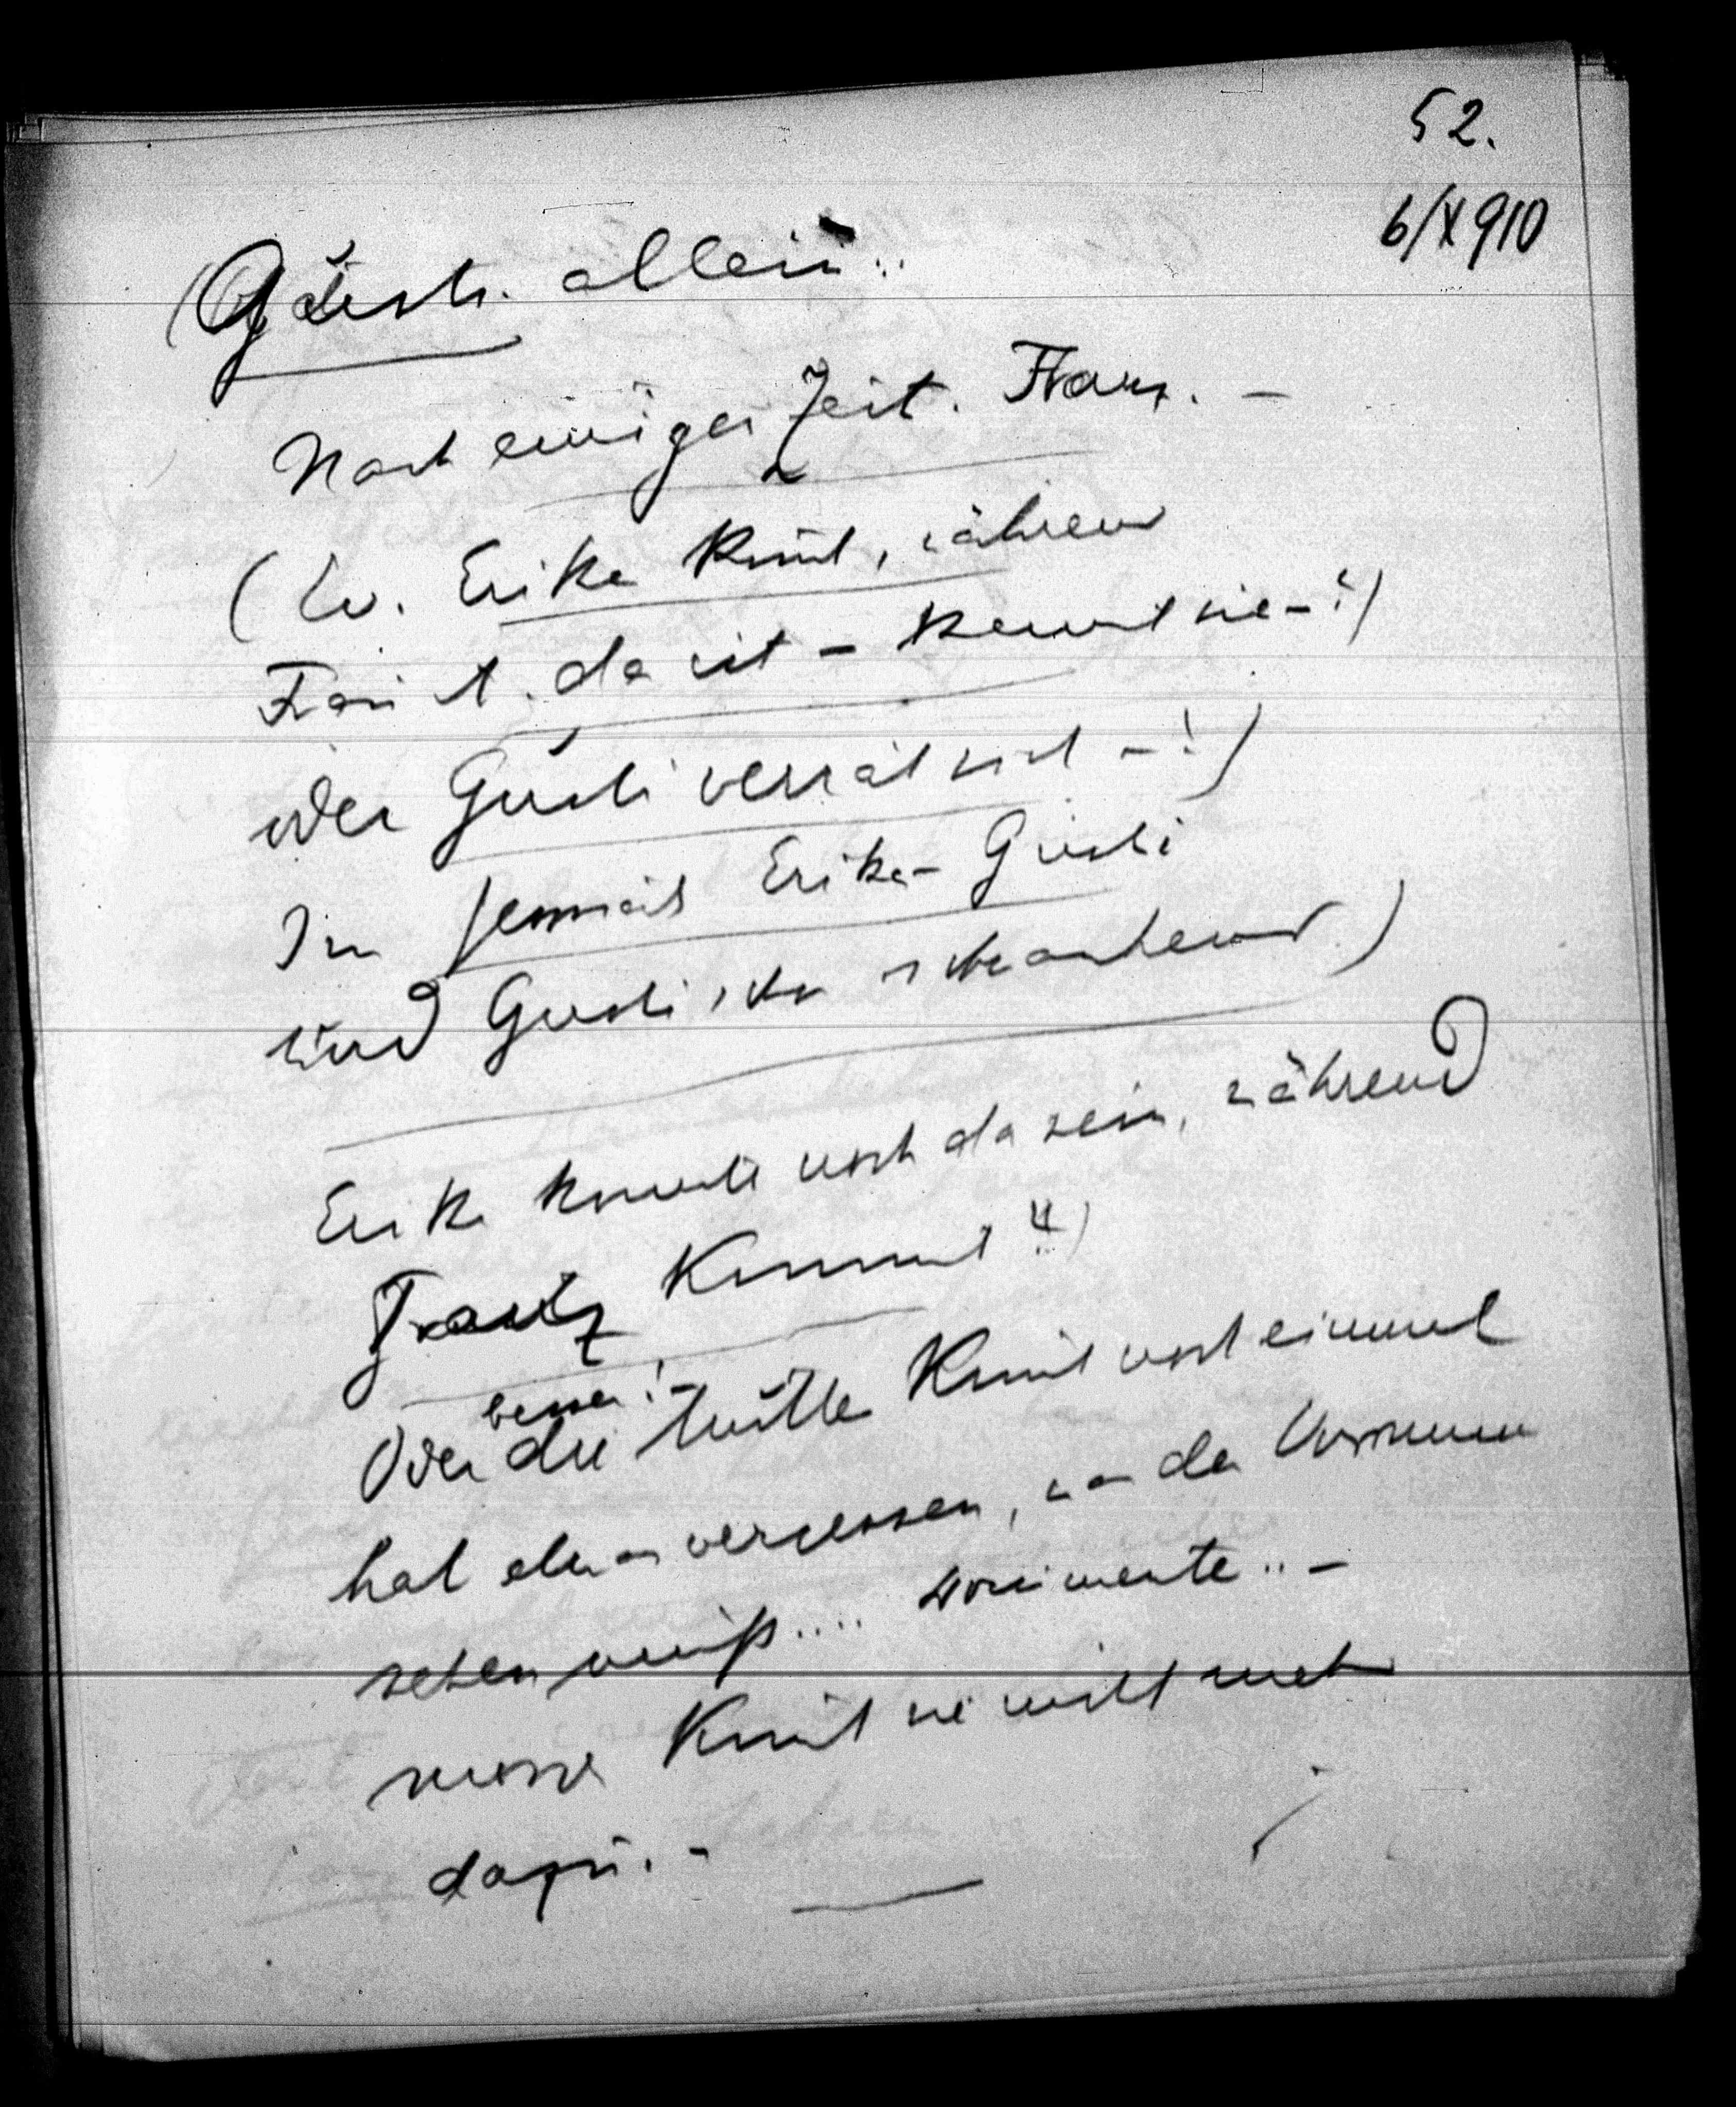 52.
6/X 910
(Gusti. allein..
Nach einiger Zeit. Franz. –
(Ev. Erika kommt, während
Franz da ist – kennt sie –?)
oder Gusti verrät sich –!)
Erika – Gusti
und Gusti schon
Erika konnte noch da sein, während
Franz kommt!!)
besser!–
Oder die Mutter kommt noch einmal
hat etwas vergessen, was der Vormund
sehen muss.... Dokumente.. –
kommt sie nicht mehr
dazu. –